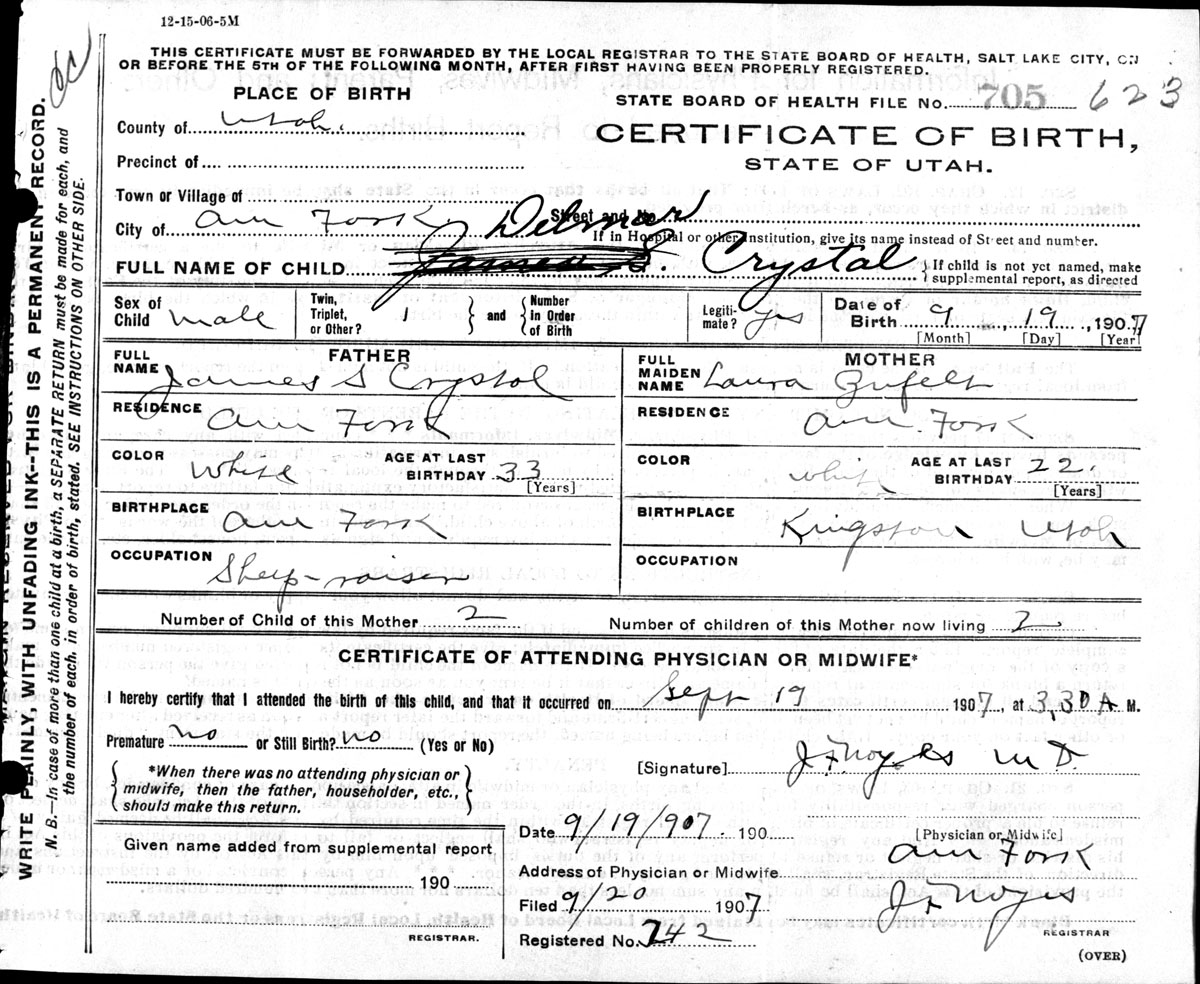 12-15-06-5M
THIS CERTIFICATE MUST BE FORWARDED BY THE LOCAL REGISTRAR TO THE STATE BOARD OF HEALTH, SALT LAKE CITY, ON
OR BEFORE THE 5TH OF THE FOLLOWING MONTH, AFTER FIRST HAVING BEEN PROPERLY REGISTERED.
PLACE OF BIRTH
STATE BOARD OF HEALTH FILE No. 705 623
County of Utah.
CERTIFICATE OF BIRTH,
STATE OF UTAH.
Precinct of
Town or Village of
City of Am Fork Street and No.
If in Hospital or other Institution, give its name instead of Street and number.
Delmar
FULL NAME OF CHILD James S. Crystal
If child is not yet named, make
supplemental report, as directed
Sex of Child Male
Twin, Triplet, or Other? 1 and Number in Order of Birth
Legiti-mate? yes
Date of Birth 9 19, 1907
[Month] [Day] [Year]
FATHER
FULL NAME James S Crystal
RESIDENCE Am Fork
COLOR White AGE AT LAST BIRTHDAY 33 [Years]
BIRTHPLACE Am Fork
OCCUPATION Sheep-raiser
MOTHER
FULL MAIDEN NAME Laura Zufelt
RESIDENCE Am. Fork
COLOR White AGE AT LAST BIRTHDAY 22. [Years]
BIRTHPLACE Kingston Utah
OCCUPATION
Number of Child of this Mother 2 Number of children of this Mother now living 2
CERTIFICATE OF ATTENDING PHYSICIAN OR MIDWIFE*
I hereby certify that I attended the birth of this child, and that it occurred on Sept 19 1907, at 3,30 A M.
Premature no or Still Birth? no (Yes or No)
*When there was no attending physician or
midwife, then the father, householder, etc.,
should make this return.
[Signature] J F Noyes M D.
Date 9/19/907 190
[Physician or Midwife]
Given name added from supplemental report
190
REGISTRAR.
Address of Physician or Midwife Am Fork
Filed 9/20 1907 J F Noyes
Registered No. 242
REGISTRAR
(OVER)
WRITE PLAINLY WITH UNFADING INK--THIS IS A PERMANENT RECORD.
N. B.—In case of more than one child at a birth, a SEPARATE RETURN must be made for each, and
the number of each, in order of birth, stated. SEE INSTRUCTIONS ON OTHER SIDE.